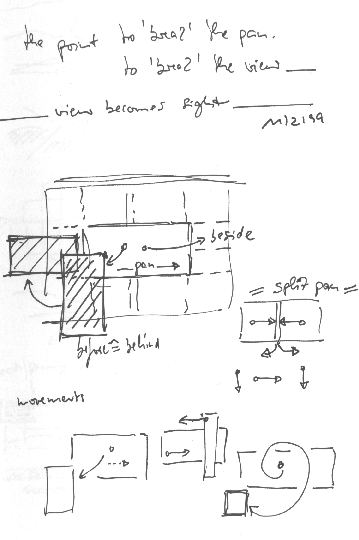 the point to 'break' the pan.
to 'break' the view
view becomes sight
beside
pan
= split pan =
before = behind
movements